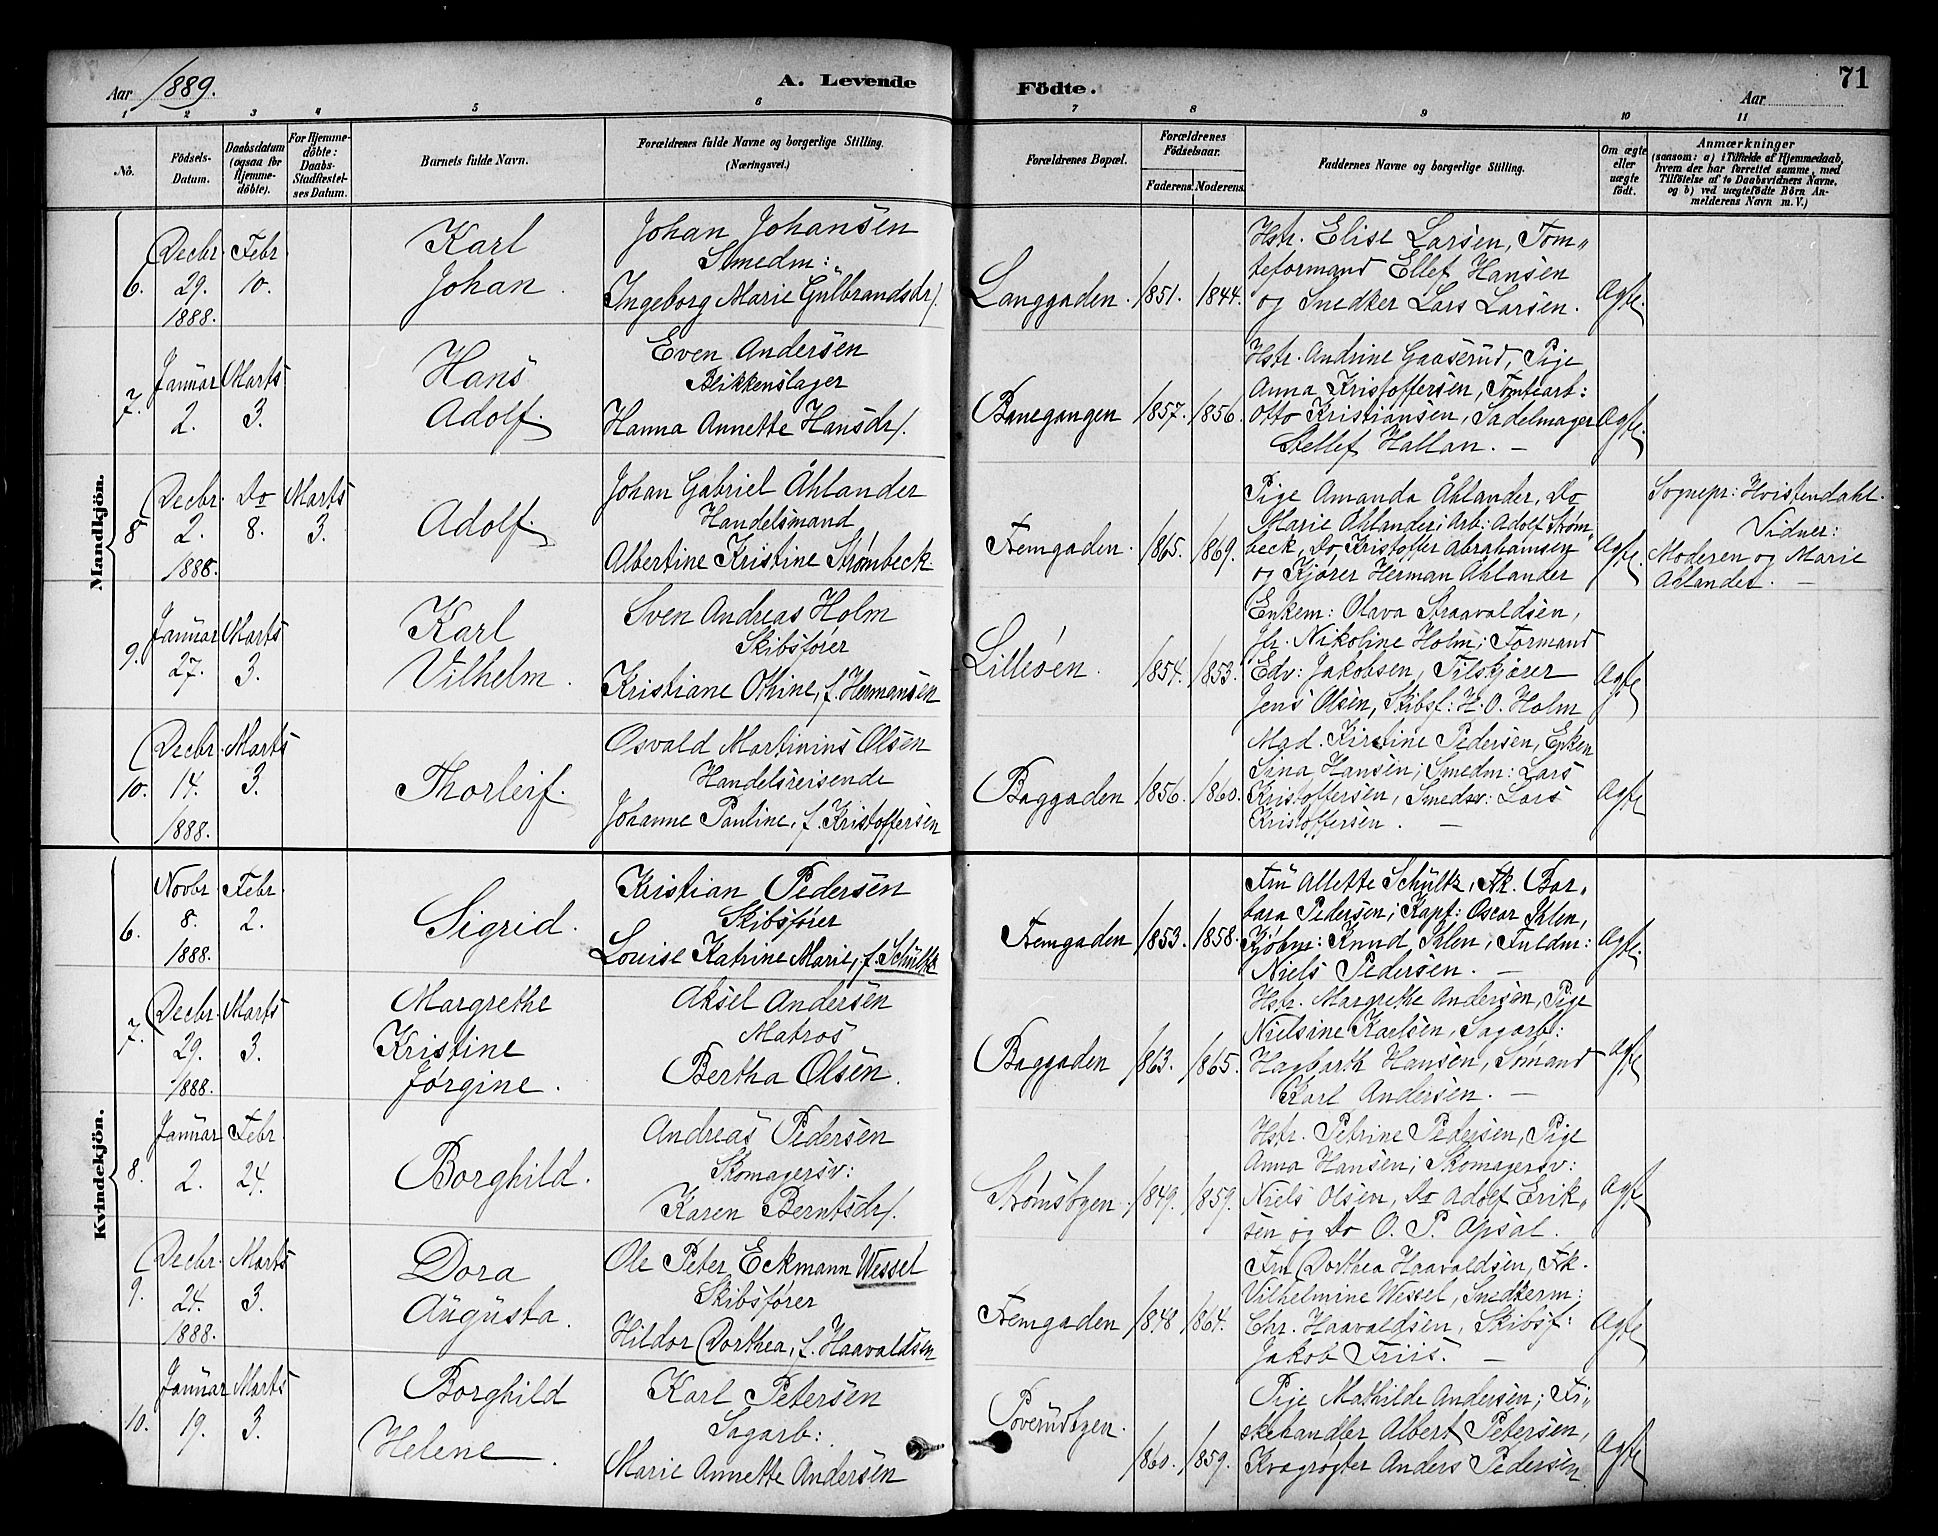 Aar 1889.
A. Levende
Födte.
Aar
71
1 2 3 4 5 6 7 8 9 10 11
No.
Födsels-
Datum.
Daabsdatum
(ogsaa for
Hjemme-
döbte).
For Hjemme-
döbte:
Daabs-
Stadfæstel-
ses Datum.
Barnets fulde Navn.
Forældrenes fulde Navne og borgerlige Stilling.
(Næringsvei.)
Forældrenes Bopæl.
Forældrenes
Födselsaar.
Faderens. Moderens.
Faddernes Navne og borgerlige Stilling.
Om ægte
eller
uægte
födt.
Anmærkninger
(saasom: a) i Tilfælde af Hjemmedaab,
hvem der har forrettet samme, med
Tilföielse af to Daabsvidners Navne,
og b) ved uægtefödte Börn An-
melderens Navn m. V.)
Mandkjön.
6.
Decbr.
29.
1888.
Febr.
10.
Karl
Johan.
Johan Johansen
Smedm:
Ingeborg Marie Gulbrandsdr.
Langgaden.
1851.
1844.
Hstr. Elise Larsen, Tom-
teformand Ellef Hansen
og Snedker Lars Larsen.
Ægte.
7.
Januar
2.
Marts
3.
Hans
Adolf.
Even Andersen
Blikkenslager
Hanna Annette Hansdr.
Banegangen
1857.
1856.
Hstr. Andrine Gaaserud, Pige
Anna Kristoffersen, Tomtearb:
Otto Kristiansen, Sadelmager
Stellef Hallan. —
Ægte.
8
Decbr.
2.
1888.
Do
8.
Marts
3.
Adolf.
Johan Gabriel Åhlander
Handelsmand
Albertine Kristine Strømbeck.
Fremgaden.
1865.
1869.
Pige Amanda Åhlander, Do
Marie Åhlander; Arb: Adolf Strøm-
beck, Do Kristoffer Abrahamsen
og Kjører Herman Åhlander
Ægte.
Sognepr: Hvistendahl.
Vidner:
Moderen og Marie
Åhlander. —
9.
Januar
27.
Marts
3.
Karl
Vilhelm.
Sven Andreas Holm
Skibsfører
Kristiane Othine, f. Hermansen
Lilleøen.
1854.
1853.
Enkem: Olava Straavaldsen,
Jfr. Nikoline Holm; Formand
Edv: Jakobsen, Tilskjører
Jens Olsen, Skibsf: H. O. Holm
Ægte
10.
Decbr.
14.
1888.
Marts
3.
Thorleif.
Osvald Martinius Olsen
Handelsreisende
Johanne Pauline, f. Kristoffersen
Baggaden
1856.
1860.
Mad. Kirstine Pedersen, Enken
Sina Hansen; Smedm: Lars
Kristoffersen, Smedsv: Lars
Kristoffersen. —
Ægte
Kvindekjön.
6.
Novbr.
8.
1888.
Febr.
2.
Sigrid.
Kristian Pedersen
Skibsfører
Louise Katrine Marie, f. Schultz
Fremgaden
1853.
1858.
Fru Allette Schultz, Frk. Bar-
bara Pedersen; Kapt: Oscar Ihlen,
Kjøbm: Knud Ihlen, Fuldm:
Niels Pedersen. —
Ægte.
7.
Decbr.
29.
1888.
Marts
3.
Margrethe
Kristine
Jørgine.
Aksel Andersen
Matros
Bertha Olsen.
Baggaden
1863.
1865.
Hstr. Margrethe Andersen, Pige
Nielsine Karlsen, Sagarb:
Hagbarth Hansen, Sømand
Karl Andersen. —
Ægte
8.
Januar
2.
Febr.
24.
Borghild.
Andreas Pedersen
Skomagersv:
Karen Berntsdr.
Strømsbyen.
1849.
1859.
Hstr. Petrine Pedersen, Pige
Anna Hansen; Skomagersv:
Niels Olsen, Do Adolf Erik-
sen og Do O. P. Opsal.
Ægte
9.
Decbr.
24.
1888.
Marts
3.
Dora
Augusta.
Ole Peter Eckmann Wessel
Skibsfører
Hildor Dorthea, f. Haavaldsen
Fremgaden
1848
1864.
Fru Dorthea Haavaldsen, Frk.
Vilhelmine Wessel, Snedkerm:
Chr. Haavaldsen, Skibsf:
Jakob Friis. —
Ægte
10.
Januar
19.
Marts
3.
Borghild
Helene.
Karl Petersen
Sagarb:
Marie Annette Andersen
Poverudbyen.
1860.
1859.
Pige Mathilde Andersen; Fi-
skehandler Albert Petersen,
Kvægrøgter Anders Pedersen
Ægte